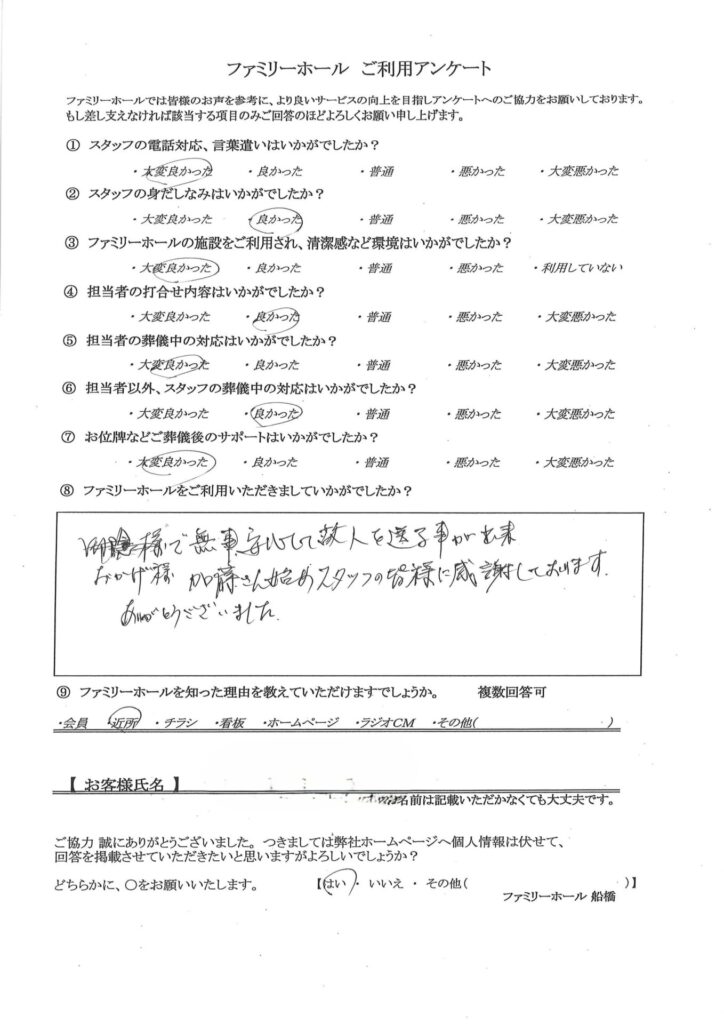 ファミリーホール ご利用アンケート
ファミリーホールでは皆様のお声を参考に、より良いサービスの向上を目指しアンケートへのご協力をお願いしております。
もし差し支えなければ該当する項目のみご回答のほどよろしくお願い申し上げます。
① スタッフの電話対応、言葉遣いはいかがでしたか？
・大変良かった ・良かった ・普通 ・悪かった ・大変悪かった
② スタッフの身だしなみはいかがでしたか？
・大変良かった ・良かった ・普通 ・悪かった ・大変悪かった
③ ファミリーホールの施設をご利用され、清潔感など環境はいかがでしたか？
・大変良かった ・良かった ・普通 ・悪かった ・利用していない
④ 担当者の打合せ内容はいかがでしたか？
・大変良かった ・良かった ・普通 ・悪かった ・大変悪かった
⑤ 担当者の葬儀中の対応はいかがでしたか？
・大変良かった ・良かった ・普通 ・悪かった ・大変悪かった
⑥ 担当者以外、スタッフの葬儀中の対応はいかがでしたか？
・大変良かった ・良かった ・普通 ・悪かった ・大変悪かった
⑦ お位牌などご葬儀後のサポートはいかがでしたか？
・大変良かった ・良かった ・普通 ・悪かった ・大変悪かった
⑧ ファミリーホールをご利用いただきましていかがでしたか？
様で無事安心して故人を送る事が出来
おかげ様 加藤さん始めスタッフの皆様に感謝しております.
ありがとうございました.
⑨ ファミリーホールを知った理由を教えていただけますでしょうか。 複数回答可
・会員 ・近所 ・チラシ ・看板 ・ホームページ ・ラジオCM ・その他( )
【 お客様氏名 】
名前は記載いただかなくても大丈夫です。
ご協力 誠にありがとうございました。つきましては弊社ホームページへ個人情報は伏せて、
回答を掲載させていただきたいと思いますがよろしいでしょうか？
どちらかに、○をお願いいたします。 【はい ・ いいえ ・ その他( )】
ファミリーホール 船橋